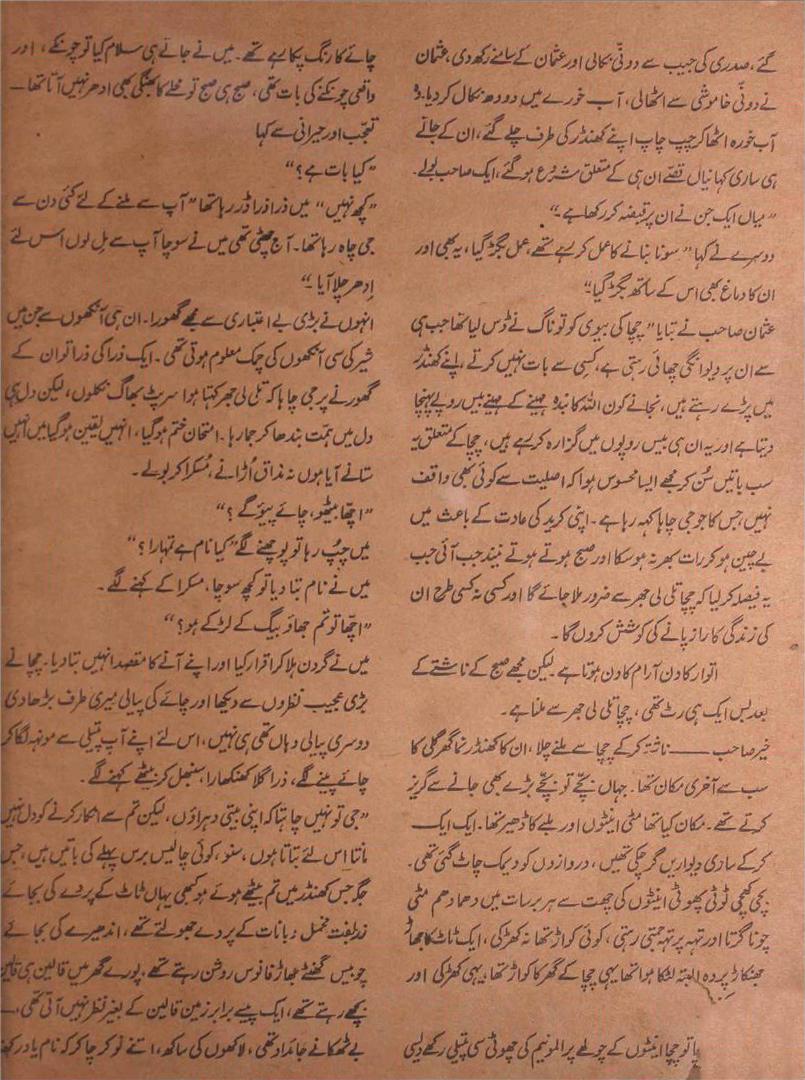 گئے، صدری کی جیب سے دونّی نکالی اور عثمان کے سامنے رکھ دی، عثمان
نے دونّی خاموشی سے اٹھالی، آب خورے میں دودھ نکال کر دیا۔ وہ
آب خورہ اٹھا کر چپ چاپ اپنے کھنڈر کی طرف چلے گئے، ان کے جاتے
ہی ساری کہانیاں قصّے ان ہی کے متعلق شروع ہوگئے، ایک صاحب بولے۔
"میاں ایک جن نے ان پر قبضہ کر رکھا ہے۔"
دوسرے نے کہا "سونا بنانے کا عمل کر رہے تھے، عمل بگڑ گیا، یہ بھی اور
ان کا دماغ بھی اس کے ساتھ بگڑ گیا۔"
عثمان صاحب نے بتایا "چچا کی بیوی کو تو ناگ نے ڈس لیا تھا جب ہی
سے ان پر دیوانگی چھائی رہتی ہے، کسی سے بات نہیں کرتے، اپنے کھنڈر
میں پڑے رہتے ہیں، نجانے کون اللہ کا بندہ مہینے کے مہینے بیس روپے پہنچا
دیتا ہے اور یہ ان ہی بیس روپوں میں گزارہ کر رہے ہیں، چچا کے متعلق یہ
سب باتیں سُن کر مجھے ایسا محسوس ہوا کہ اصلیت سے کوئی بھی واقف
نہیں، جس کا جو جی چاہا کہہ رہا ہے۔ اپنی کرید کی عادت کے باعث میں
بے چین ہو کر رات بھر نہ سو سکا اور صبح ہوتے ہوتے نیند جب آئی جب
یہ فیصلہ کر لیا کہ چچا تلی لی جھر سے ضرور ملا جائے گا اور کسی نہ کسی طرح ان
کی زندگی کا راز پانے کی کوشش کروں گا۔
اتوار کا دن آرام کا دن ہوتا ہے۔ لیکن مجھے صبح کے ناشتے کے
بعد بس ایک ہی رٹ تھی، چچا تلی لی جھر سے ملنا ہے۔
خیر صاحب ـــــ ناشتہ کر کے چچا سے ملنے چلا، ان کا کھنڈر نما گھر گلی کا
سب سے آخری مکان تھا۔ جہاں بچّے تو بچّے بڑے بھی جانے سے گریز
کرتے تھے۔ مکان کیا تھا مٹی اینٹوں اور ملبے کا ڈھیر تھا۔ ایک ایک
کر کے ساری دیواریں گر چکی تھیں، دروازوں کو دیمک چاٹ گئی تھی۔
بچی کھچی ٹوٹی پھوٹی اینٹوں کی چھت سے ہر برسات میں دھما دھم مٹی
چونا گرتا اور تہہ پر تہہ جمتی رہتی، کوئی کواڑ تھا نہ کھڑکی، ایک ٹاٹ کا جھاڑ
جھنکاڑ پردہ البتہ لٹکا ہوا تھا یہی چچا کے گھر کا کواڑ تھا، یہی کھڑکی اور
تو چچا اینٹوں کے چولہے پر المونیم کی چھوٹی سی پتیلی رکھے دیسی
چائے کا رنگ پکا رہے تھے۔ میں نے جاتے ہی سلام کیا تو چونکے، اور
واقعی چونکنے کی بات تھی، صبح ہی صبح تو محلے کا بھنگی بھی ادھر نہیں آتا تھا۔
تعجب اور حیرانی سے کہا
"کیا بات ہے؟"
"کچھ نہیں" میں ذرا ذرا ڈر رہا تھا "آپ سے ملنے کے لئے کئی دن سے
جی چاہ رہا تھا۔ آج چھٹی تھی میں نے سوچا آپ سے مل لوں اس لئے
اِدھر چلا آیا۔"
انہوں نے بڑی بے اعتباری سے مجھے گھورا۔ ان ہی آنکھوں سے جن میں
شیر کی سی آنکھوں کی چمک معلوم ہوتی تھی۔ ایک ذرا کی ذرا تو ان کے
گھورنے پر جی چاہا کہ تلی لی جھر کہتا ہوا سرپٹ بھاگ نکلوں، لیکن دل ہی
دل میں ہمّت بندھا کر جما رہا۔ امتحان ختم ہوگیا، انہیں یقین ہوگیا میں انہیں
ستانے آیا ہوں نہ مذاق اُڑانے، مُسکرا کر بولے۔
"اچھا بیٹھو، چائے پیوٴ گے؟"
میں چپُ رہا تو پوچھنے لگے "کیا نام ہے تمہارا؟"
میں نے نام بتا دیا تو کچھ سوچا، مسکرا کے کہنے لگے۔
"اچھا تو تم جھاؤ بیگ کے لڑکے ہو؟"
میں نے گردن ہلا کر اقرار کیا اور اپنے آنے کا مقصد انہیں بتا دیا۔ چچا نے
بڑی عجیب نظروں سے دیکھا اور چائے کی پیالی میری طرف بڑھا دی
دوسری پیالی وہاں تھی ہی نہیں، اس لئے اپنے آپ پتیلی سے مونہہ لگا کر
چائے پینے لگے، ذرا گلا کھنکھارا، سنبھل کر بیٹھے کہنے لگے۔
"جی تو نہیں چاہتا کہ اپنی بیتی دہراؤں، لیکن تم سے انکار کرنے کو دل نہیں
مانتا اِس لئے بتاتا ہوں، سنو، کوئی چالیس برس پہلے کی باتیں ہیں، جس
جگہ جس کھنڈر میں تم بیٹھے ہوئے ہو کبھی یہاں ٹاٹ کے پردے کی بجائے
زربفت مخمل و بانات کے پردے جھولتے تھے، اندھیرے کی بجائے
چوبیس گھنٹے جھاڑ فانوس روشن رہتے تھے۔ پورے گھر میں قالین ہی قالین
بچھے رہتے تھے، ایک پیسے برابر زمین قالین کے بغیر نظر نہیں آتی تھی۔
بے ٹھکانے جائداد تھی، لاکھوں کی ساکھ، اتنے نوکر چاکر کہ نام یاد رکھنا